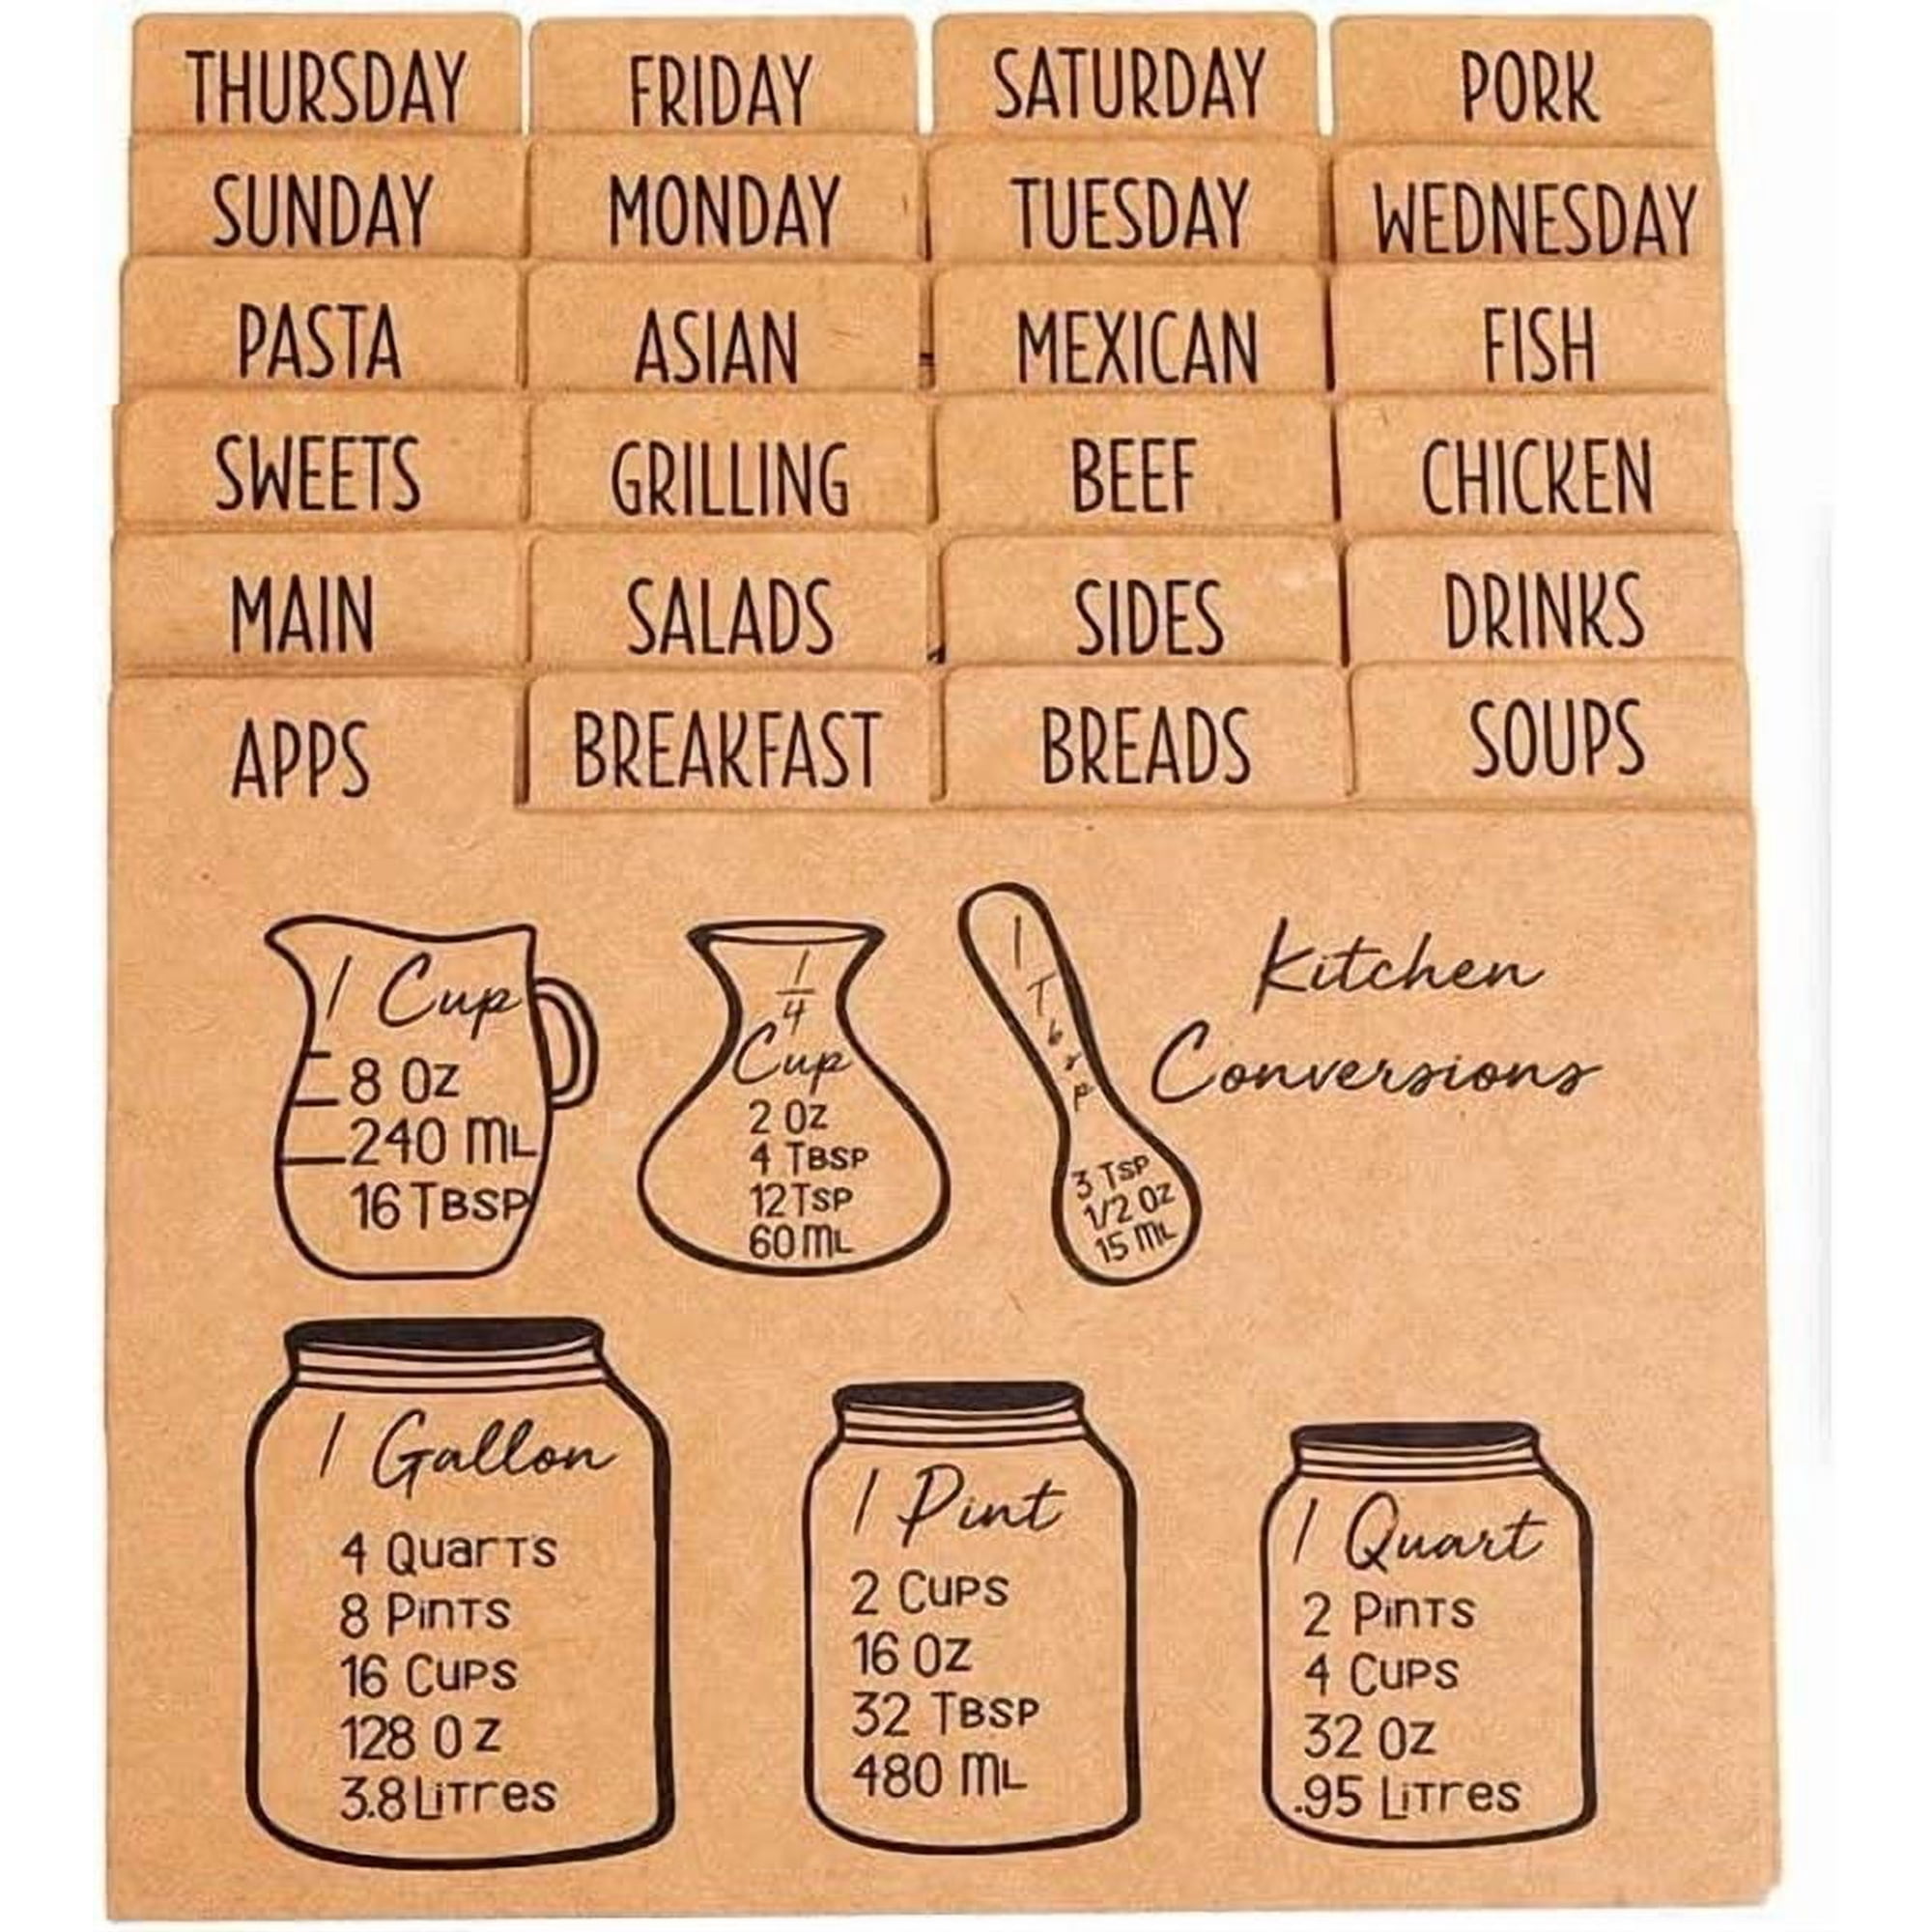 THURSDAY FRIDAY SATURDAY PORK
SUNDAY MONDAY TUESDAY WEDNESDAY
PASTA ASIAN MEXICAN FISH
SWEETS GRILLING BEEF CHICKEN
MAIN SALADS SIDES DRINKS
APPS BREAKFAST BREADS SOUPS
1 Cup
8 OZ
240 ML
16 TBSP
1/4
Cup
2 OZ
4 TBSP
12 TSP
60 ML
1 Tbsp
3 TSP
1/2 OZ
15 ML
Kitchen
Conversions
1 Gallon
4 QUARTS
8 PINTS
16 CUPS
128 OZ
3.8 LITRES
1 Pint
2 CUPS
16 OZ
32 TBSP
480 ML
1 Quart
2 PINTS
4 CUPS
32 OZ
.95 LITRES